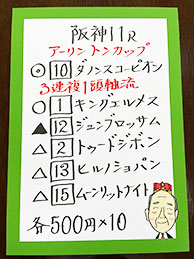 阪神11R
アーリントンカップ
◎10 ダノンスコーピオン
3連複1頭軸流
○1 キングエルメス
▲12 ジュンブロッサム
△2 トゥードジボン
△13 ヒルノショパン
△15 ムーンリットナイト
各500円×10